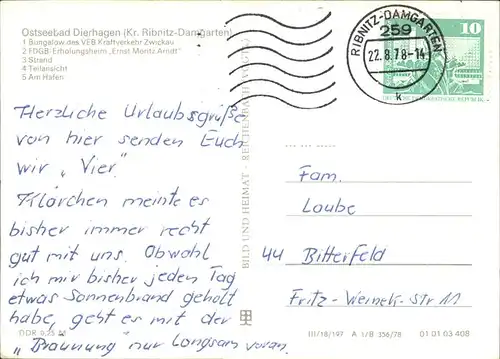 Ostseebad Dierhagen (Kr. Ribnitz-Damgarten)
1 Bungalow des VEB Kraftverkehr Zwickau
2 FDGB-Erholungsheim „Ernst Moritz Arndt"
3 Strand
4 Teilansicht
5 Am Hafen
Herzliche Urlaubsgrüße
von hier senden Euch
wir „Vier".
Klärchen meinte es
bisher immer recht
gut mit uns. Obwohl
ich mir bisher jeden Tag
etwas Sonnenbrand geholt
habe, geht es mit der
„Bräunung" nur langsam voran.
DDR 0,25 M
BILD UND HEIMAT · REICHENBACH (VOGTL)
RIBNITZ-DAMGARTEN
259
22.8.78-14
k
10
DEUTSCHE DEMOKRATISCHE REPUBLIK
Fam.
Laube
44 Bitterfeld
Fritz-Weinek-Str 11
III/18/197 A 1/B 356/78 01 01 03 408